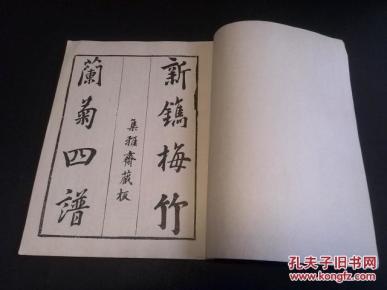 新鐫梅竹
集雅齋藏板
蘭菊四譜
孔夫子旧书网